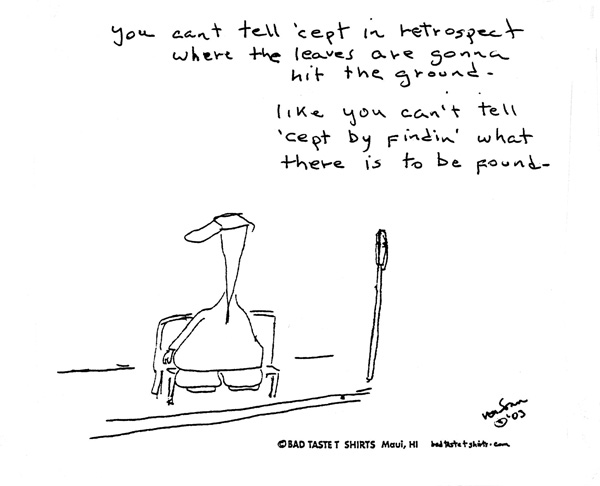 you can't tell 'cept in retrospect
where the leaves are gonna
hit the ground-
like you can't tell
'cept by findin' what
there is to be found-
©'03
© BAD TASTE T SHIRTS Maui, HI badtastetshirts.com